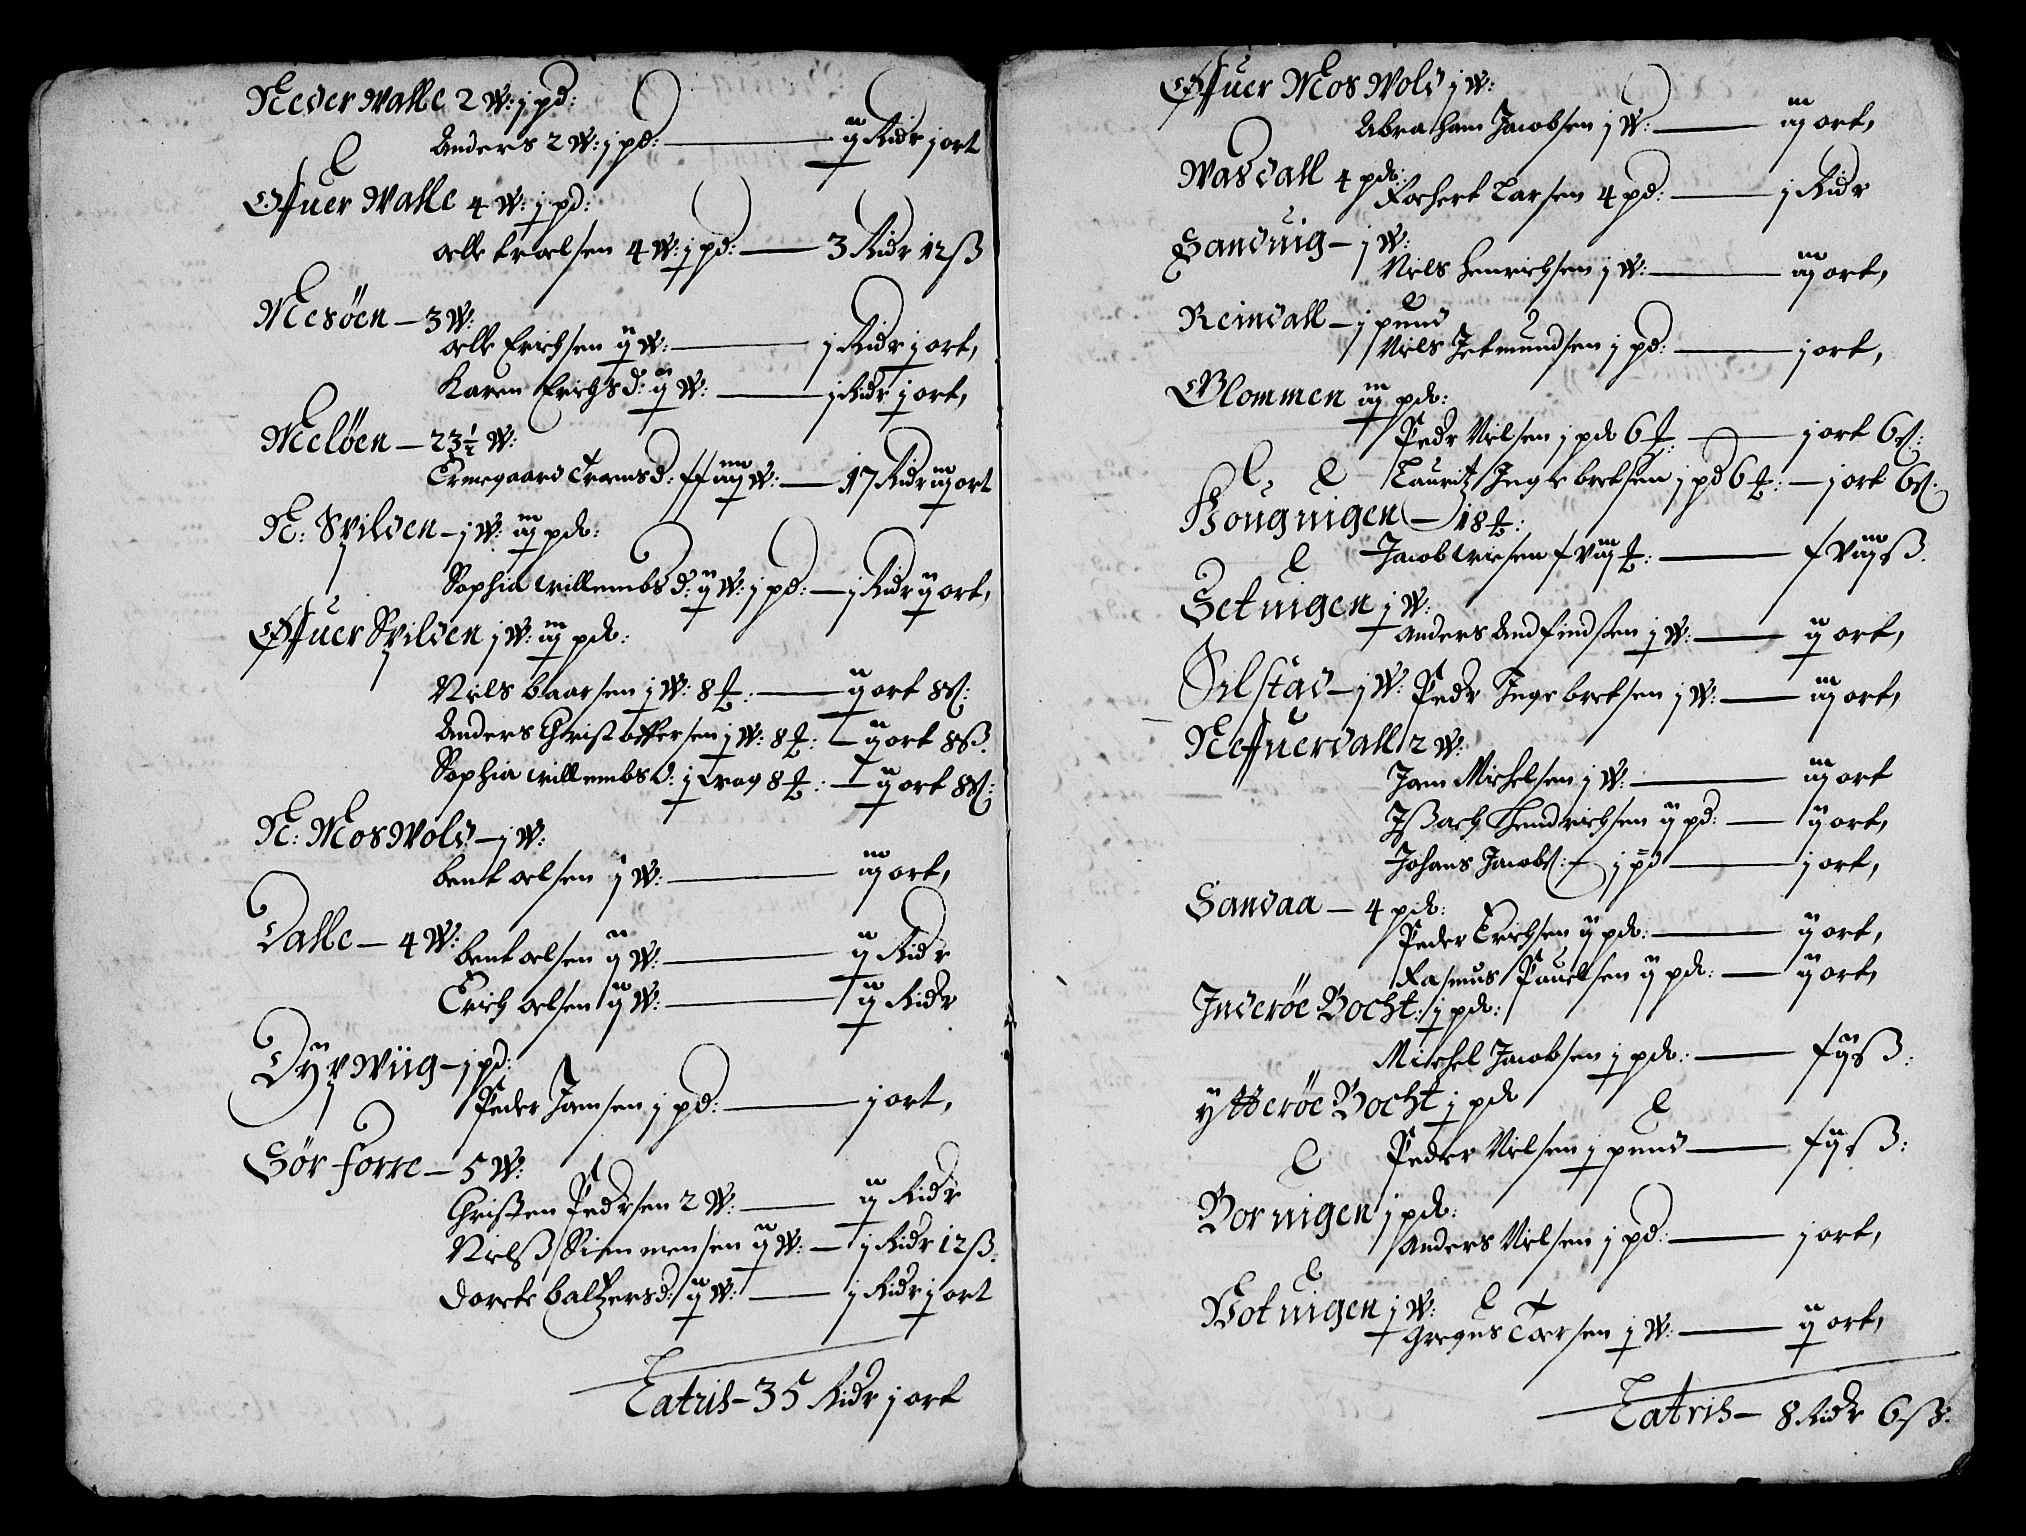 Neder Walle 2 W: j pd:
Anders 2 W: j pd: — ij Ridr j ort
Offuer Walle 4 W: j pd:
olle troelsen 4 W: j pd: — 3 Ridr 12 ß
Mesöen — 3 W:
olle Erichsen ij W: — j Ridr j ort,
Karen Erichsd: ij W: — j Ridr j ort,
Melöen — 23½ W:
Ermegaard Troensd: W: — 17 Ridr iij ort
N: Spilden — j W: iij pd:
Sophia willembsd: ij W: j pd: — j Ridr ij ort,
Offuer Spilden j W: iij pd:
Niels baarsen j W: 8 — ij ort 8 ß:
Anders Christoffersen j W: 8 — ij ort 8 ß.
Sophia willembsd: j waag 8 — ij ort 8 ß:
N: Moswold — j W:
bent olsen j W: — iij ort,
Dalle — 4 W:
bent olsen ij W: — ij Ridr
Erich olsen ij W: — ij Ridr
Dypwiig — j pd:
Peder Jonsen j pd: — j ort,
Sör forre — 5 W:
Christen Pedrsen 2 W: — ij Ridr
Nielß Simmensen ij W: — j Ridr 12 ß:
dorete baltzersd: ij W: — j Ridr j ort
Latris — 35 Ridr j ort
Offuer Moswold j W:
Abraham Jacobsen j W: — iij ort,
Wasdall 4 pd:
Larsen 4 pd: — j Ridr
Sanduig — j W:
Niels Henrichsen j W: — iij ort,
Reindall — j pund
Niels Jetmundsen j pd: — j ort,
Glommen iij pd:
Pedr Nielsen j pd 6 — j ort 6 ß:
Lauritz Ingebretsen j pd 6 — j ort 6 ß.
Houguigen — 18
Jacob — xviij ß.
Setuigen j W:
Anders Andfindsen j W: — ij ort,
Selstad — j W: Pedr Ingebretsen j W: — iij ort,
Neffuerdall 2 W:
Joen Michelsen j W: — iij ort
Ißach Hendrichsen ij pd: — ij ort,
Johans Jacobß: — j pd — j ort,
Sandaa — 4 pd:
Peder Erichsen ij pd: — ij ort,
Rasmus Pouelsen ij pd: — ij ort,
Inderöe Bocht: j pd:
Michel Jacobsen j pd: — xij ß:
ytteröe Bocht j pd
Peder Nielsen j pund — xij ß:
Boruigen j pd:
Anders Nielsen j pd: — j ort,
Botuigen j W:
Gregus Toersen j W: — ij ort,
Latris — 8 Ridr 6 ß: